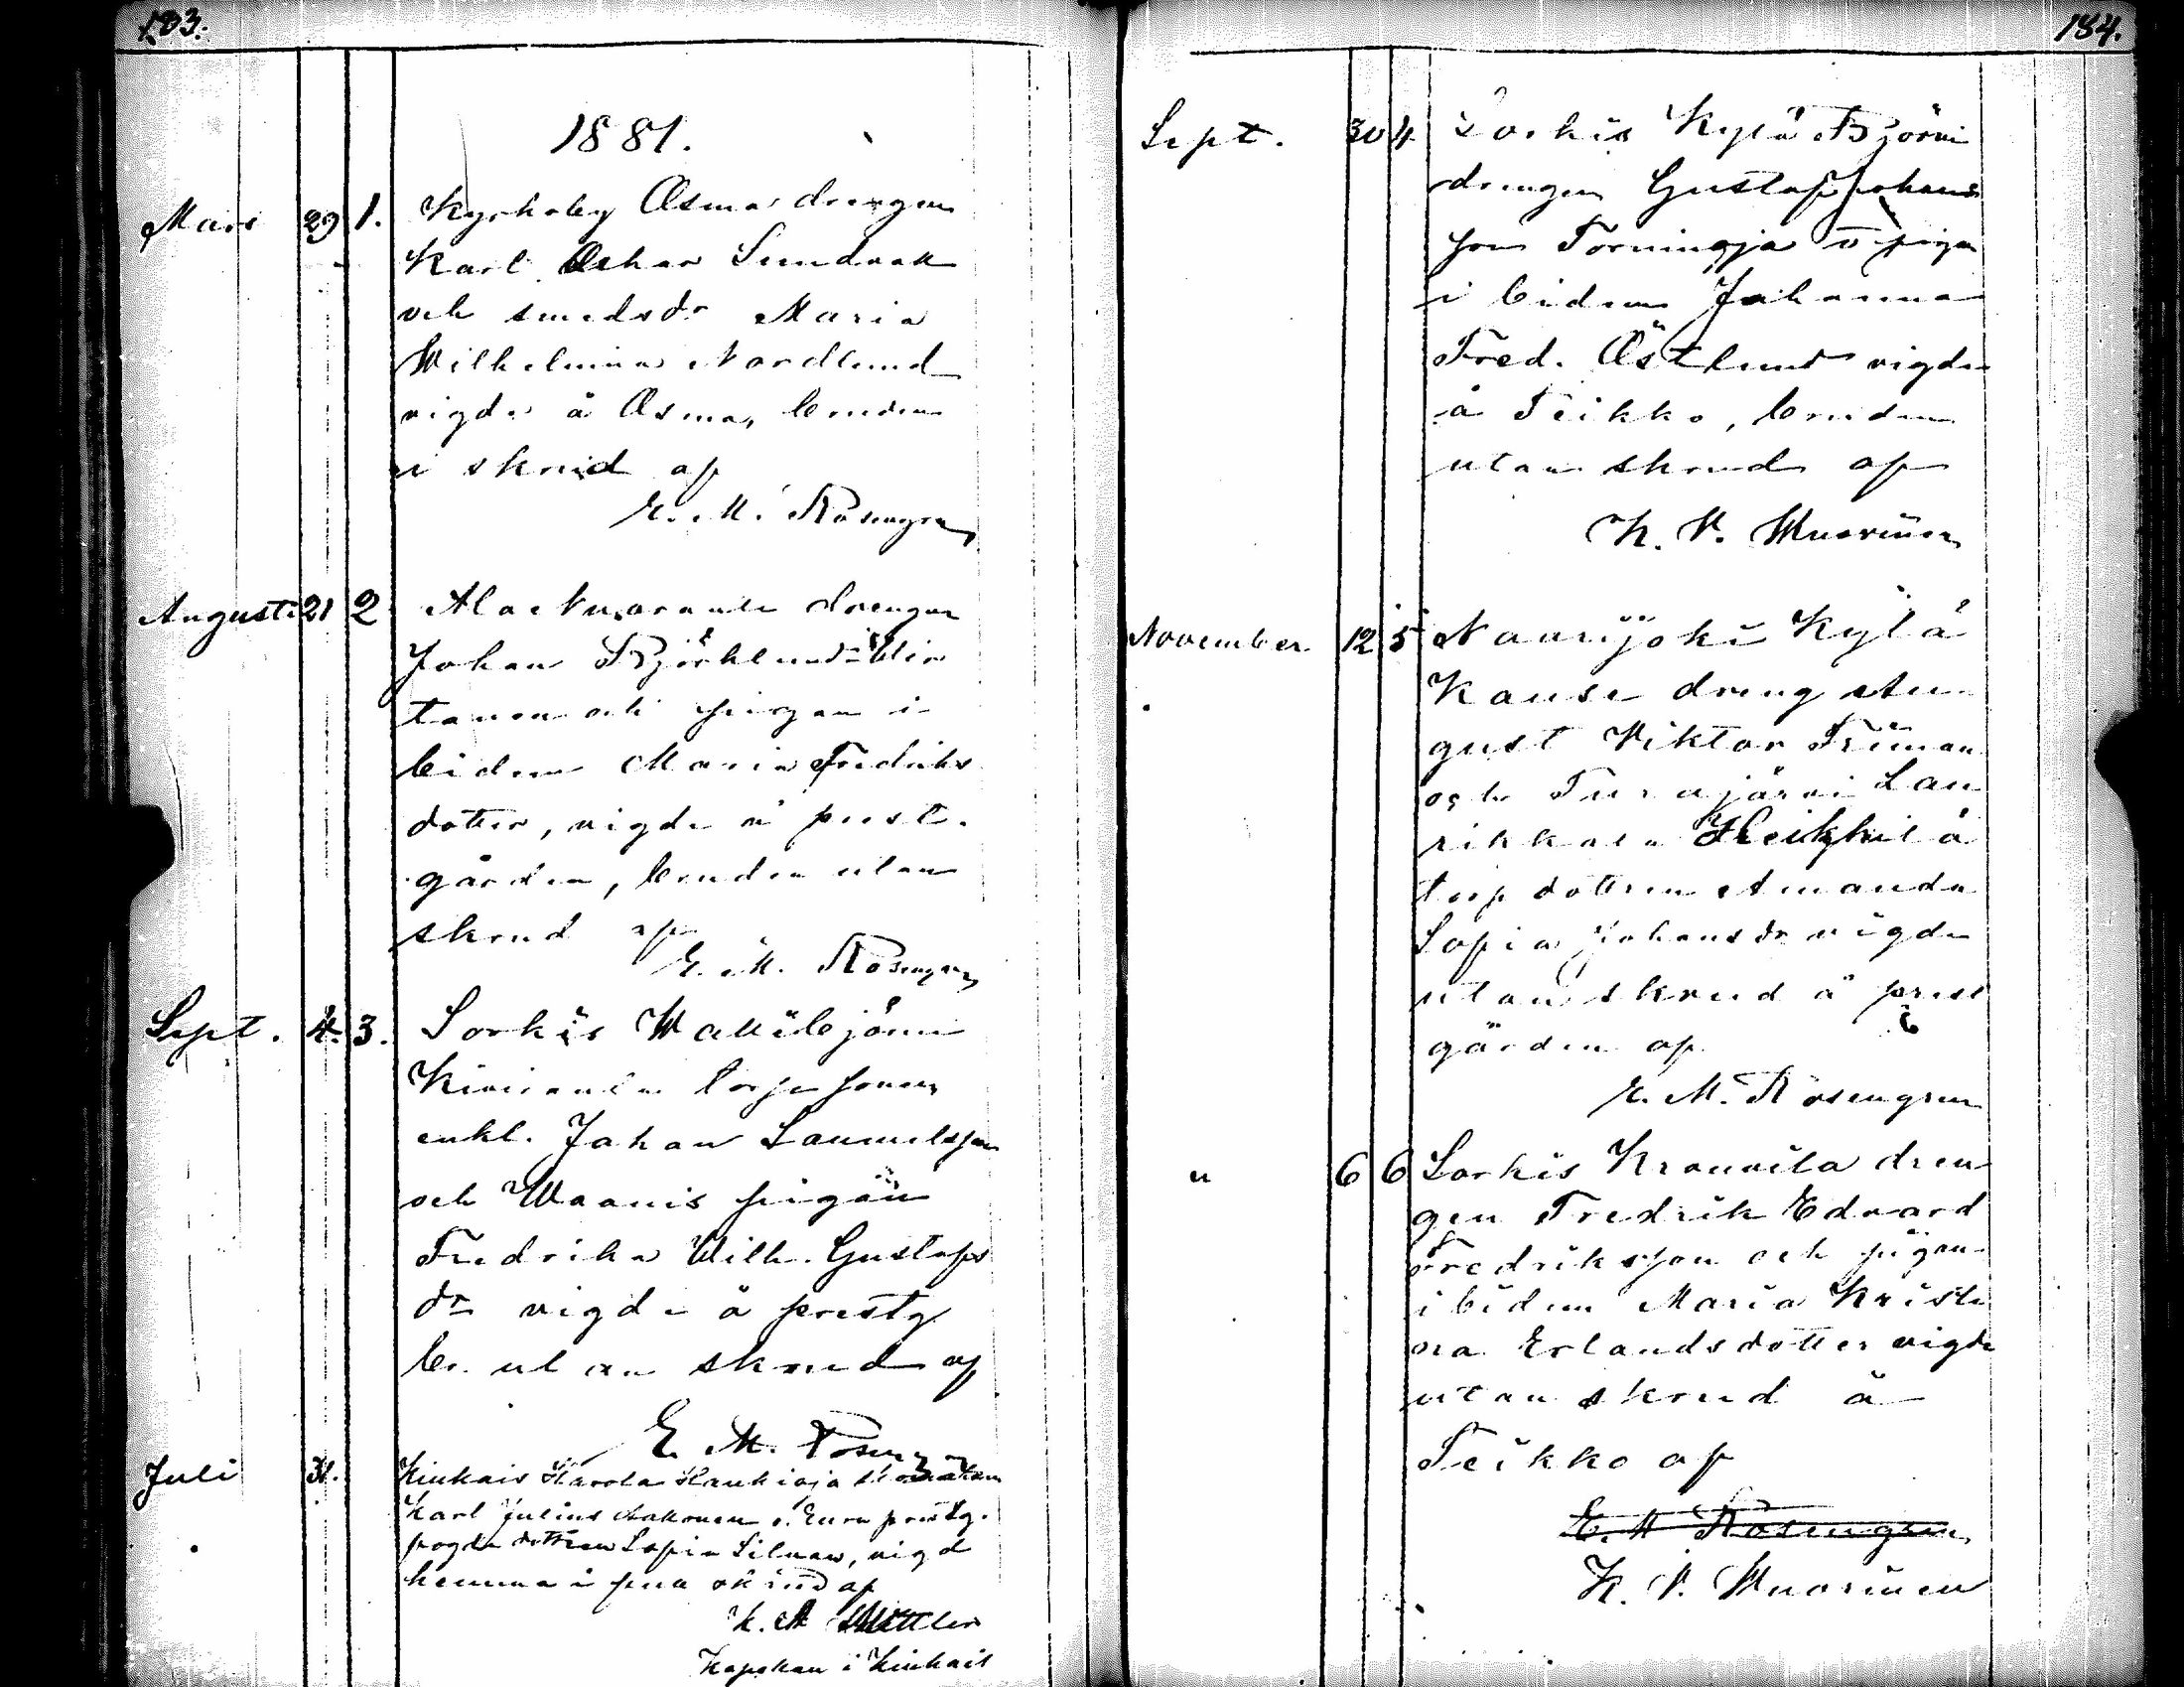 183.
1881.
Mars 29 1. Kyrkoby Osma drengen
Karl Oskar Sundvak
och smedsdr Maria
Wilhelmina Nordlund
vigde å Osma, bruden
i skrud af
E. M. Rosengren
Augusti 21 2 drengen
Johan Björklund
och pigan i
bidem Maria Fredriks
dotter, vigde å prest.
gården, bruden utan
skrud af
E. M. Rosengren
Sept. 4. 3. Sorkis
Kiviranta torpsonen
enkl. Johan Samuelsson
och Waanis pigan
Fredrika Wilh. Gustafs
dr vigde å prestg
br. utan skrud af
E. M. Rosengren
Juli 31. Kiukais Harola Haukioja
Karl Julius o. Eura prestg.
fogde dottren Sofia Silvan, vigd
hemma i full skrud af
K. A
Kapelan i Kiukais
184.
Sept. 30 4 Sorkis Kylä Björni
drengen Gustaf Johans
son Torningja o pigan
i bidem Johanna
Fred. Östlund vigde
å Teikko, bruden
utan skrud af
K. V. Wuorinen
November 12 5 Naarijoki Kylä
Kause dreng Au
gust Viktor Friman
och Turajärvi Lau
rikkala Heikkilä
torp dottren Amanda
Sofia Johansdr vigde
utan skrud å prest
gården af
E. M. Rosengren
" 6 6 Sorkis Krouvila dren
gen Fredrik Edvard
Fredriksson och pigan
i bidem Maria Kristi
na Erlandsdotter vigde
utan skrud å
Teikko af
E. M Rosengren
K. V. Wuorinen